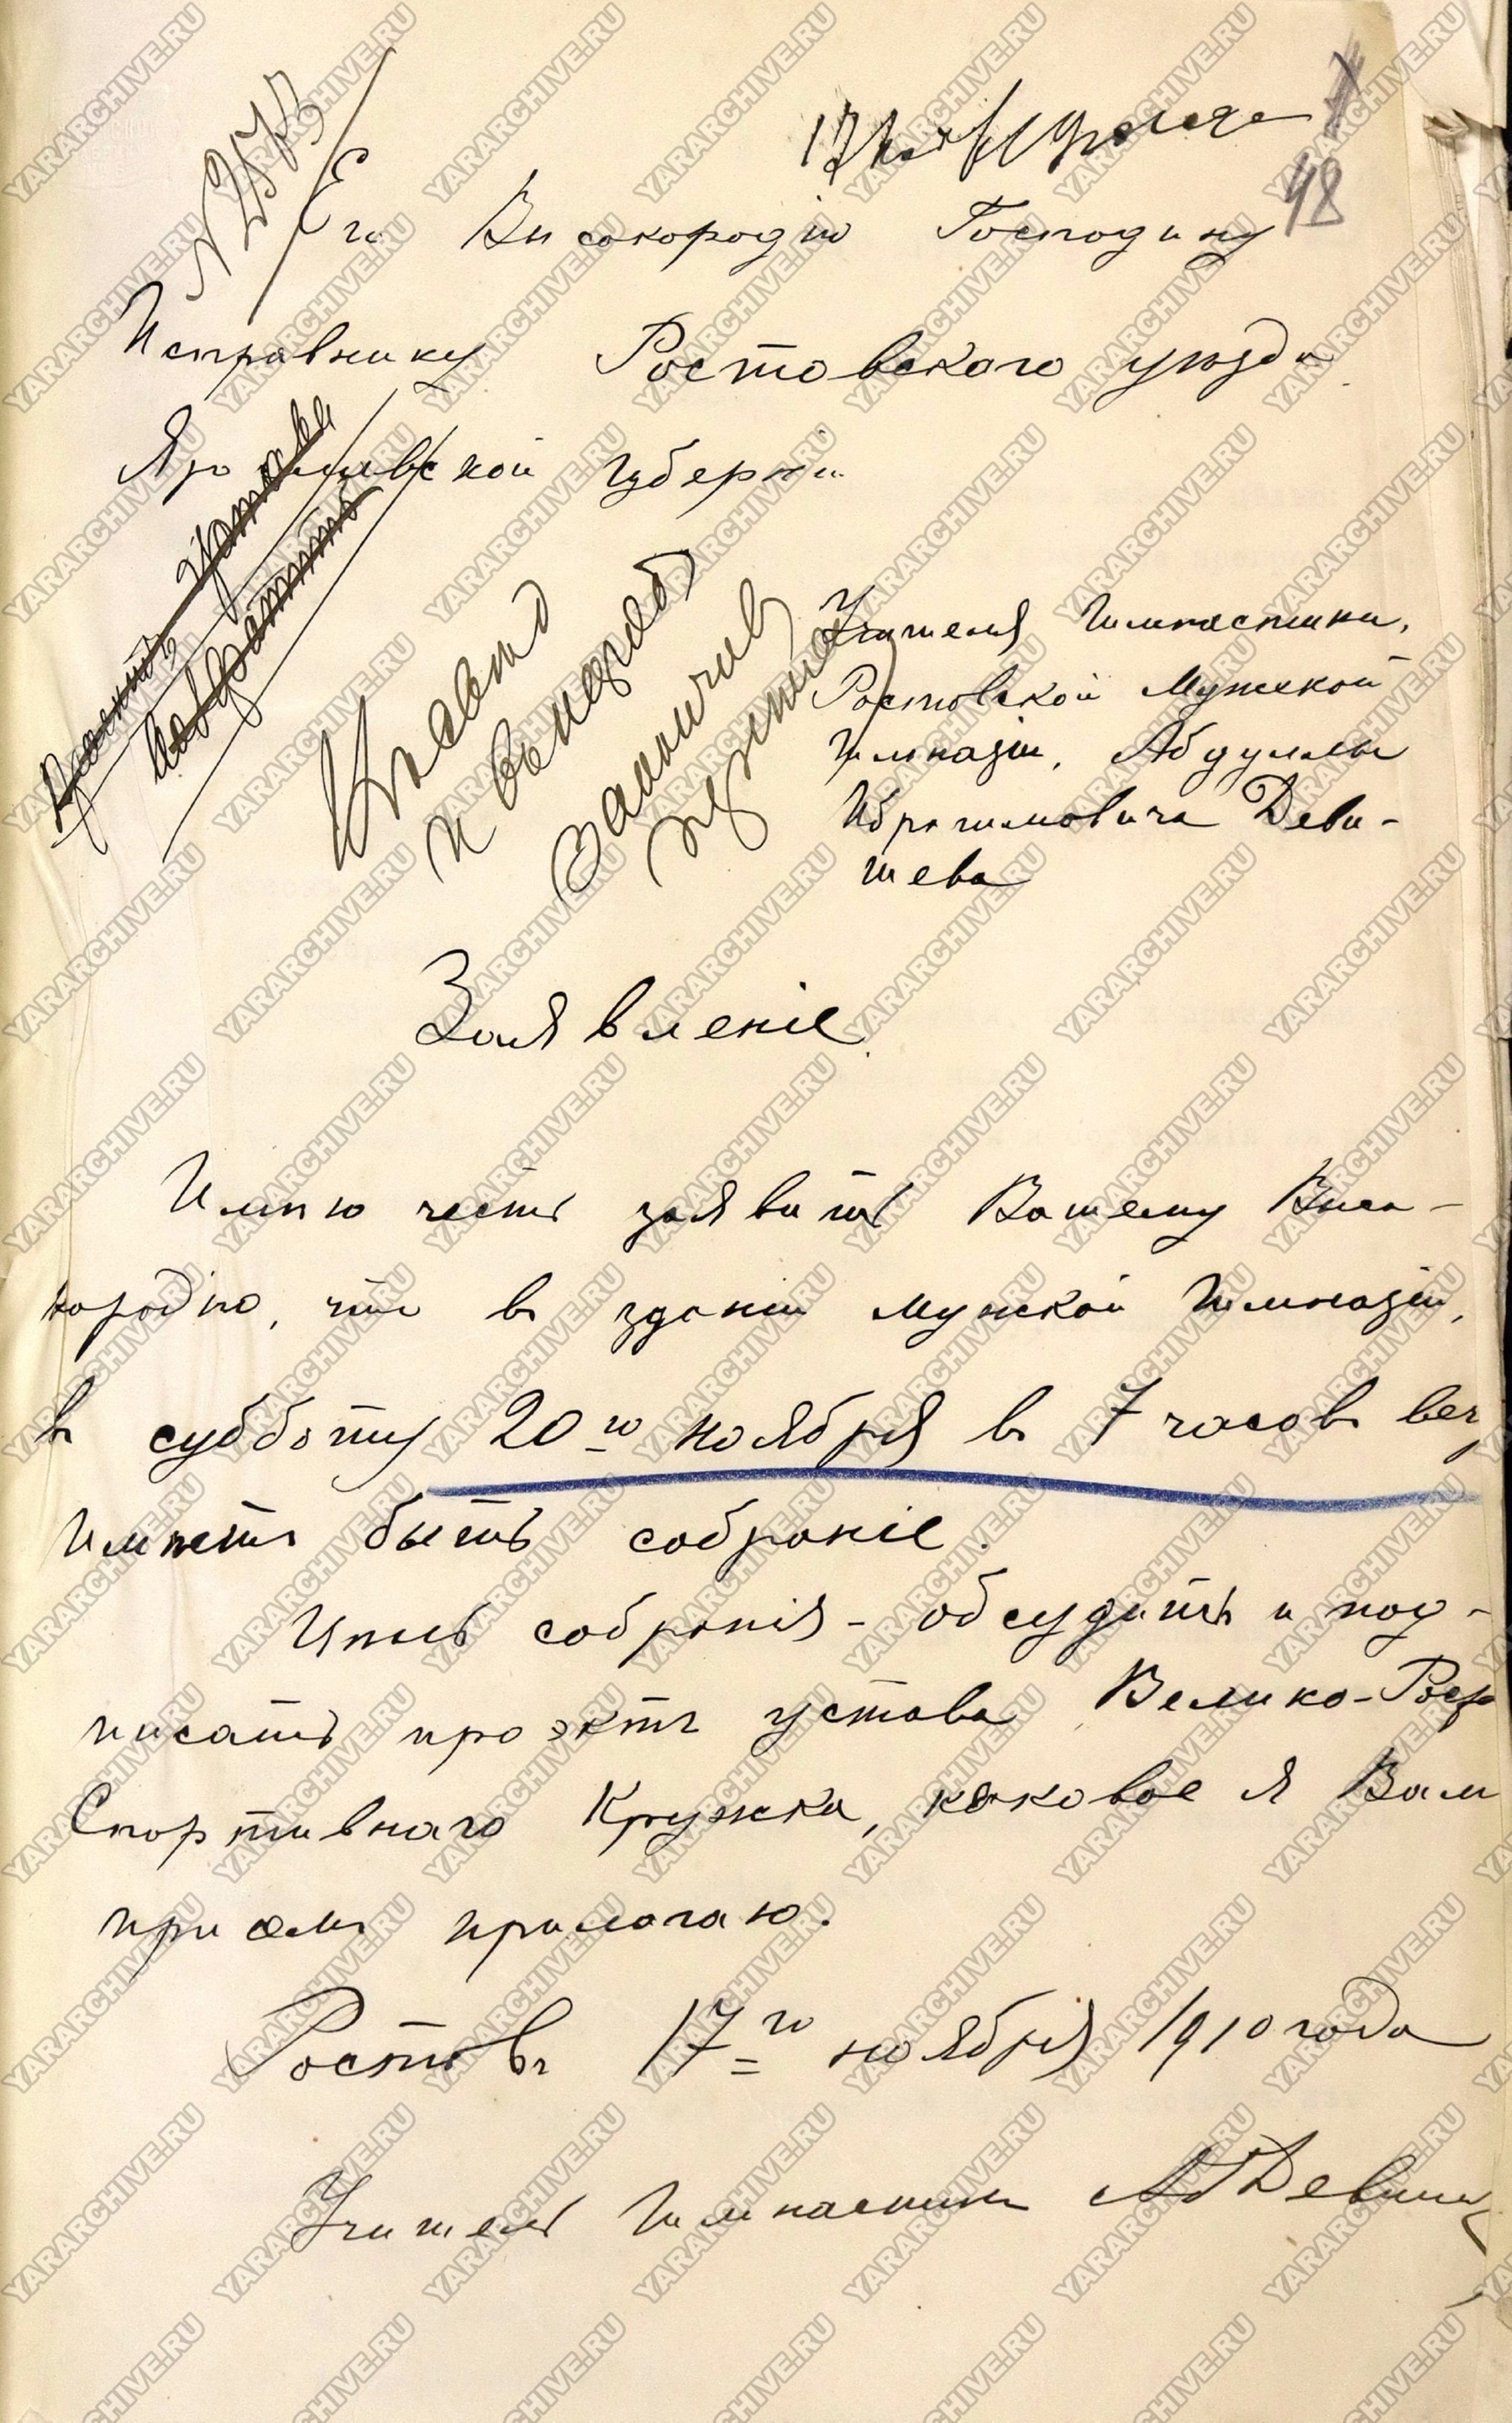 № 2573
48
Его Высокородію Господину
Исправнику Ростовского уѣзда
Ярославской губерніи
Проектъ устава
возвратить
Учителя Гимнастики,
Ростовской Мужской
Гимназіи, Абдуллы
Ибрагимовича Деви-
шева
Заявленіе
Имѣю честь заявить Вашему Высо-
кородію, что въ зданіи мужской Гимназіи,
въ субботу 20го ноября въ 7 часовъ веч.
имѣетъ быть собраніе.
Цѣль собранія - обсудить и под-
писать проэктъ устава Велико-Рос
Спортивнаго Кружка, каковое я Вам
при семъ прилагаю.
Ростовъ 17го ноября 1910 года
Учитель Гимнастики А Девиш
YARARCHIVE.RU